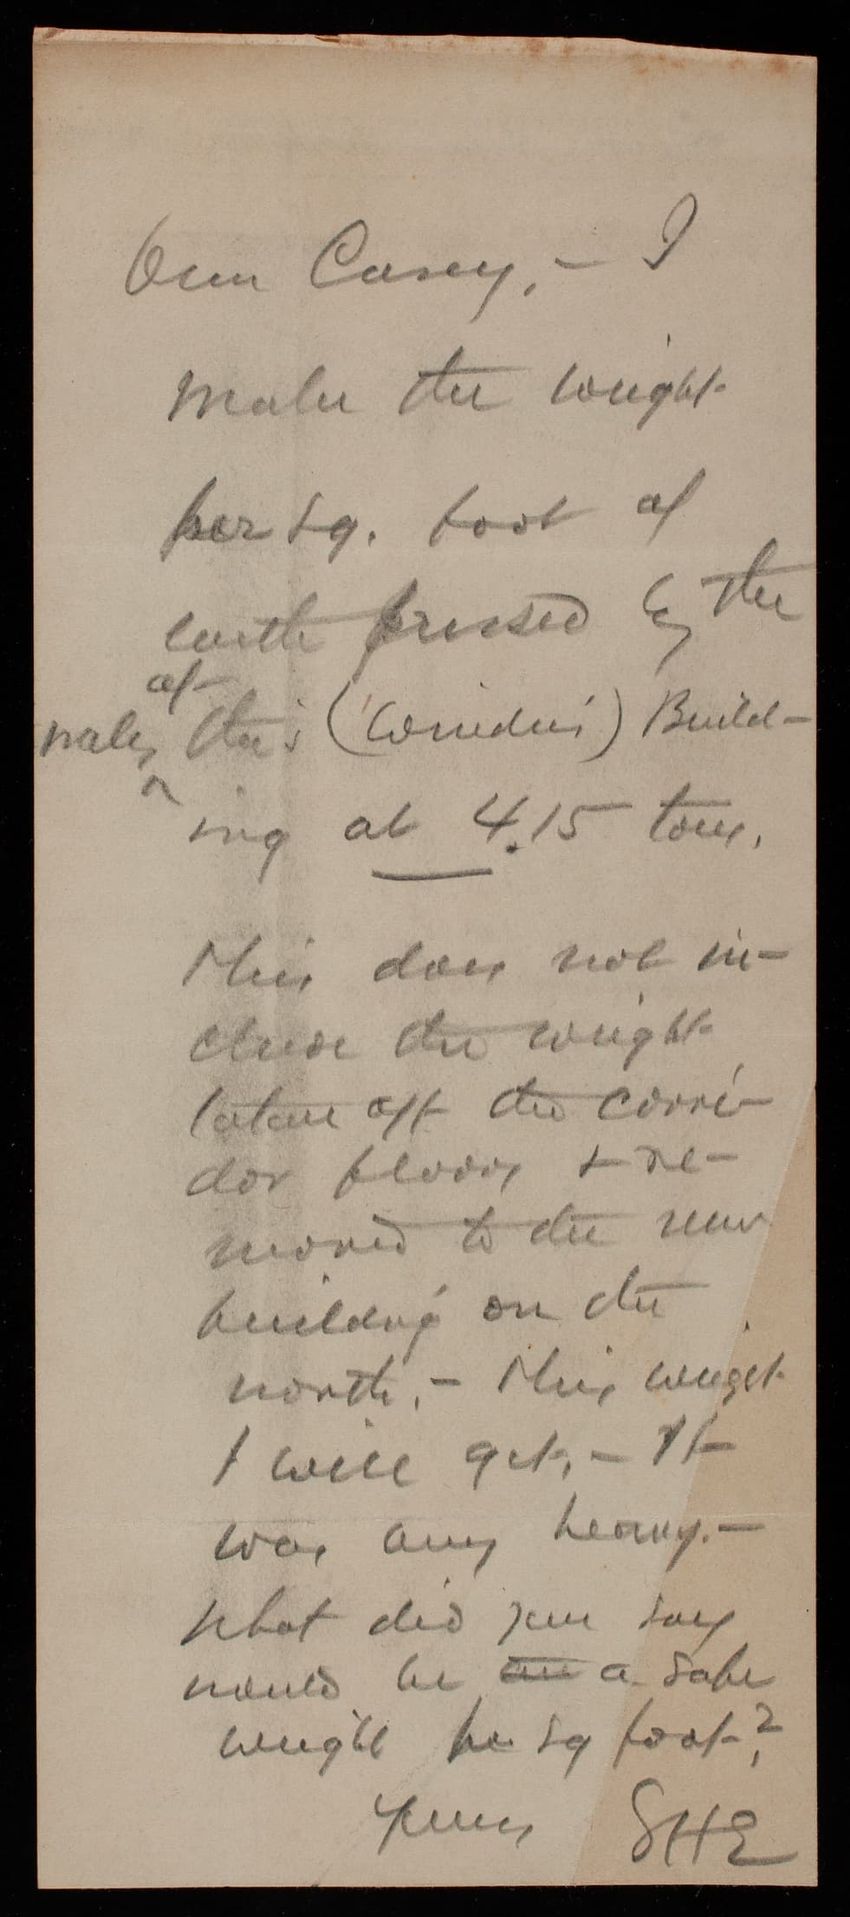 Dear Casey, - I
make the weight
per sq. foot of
earth pressed by the
walls of this (Winders') Build-
ing at 4.15 tons.
This does not in-
clude the weight
taken off the corri-
dor floors & re-
moved to the new
building on the
north, - This weight
I will get, - It
was very heavy. -
What did you say
would be an a safe
weight per sq foot?
Yours SHE